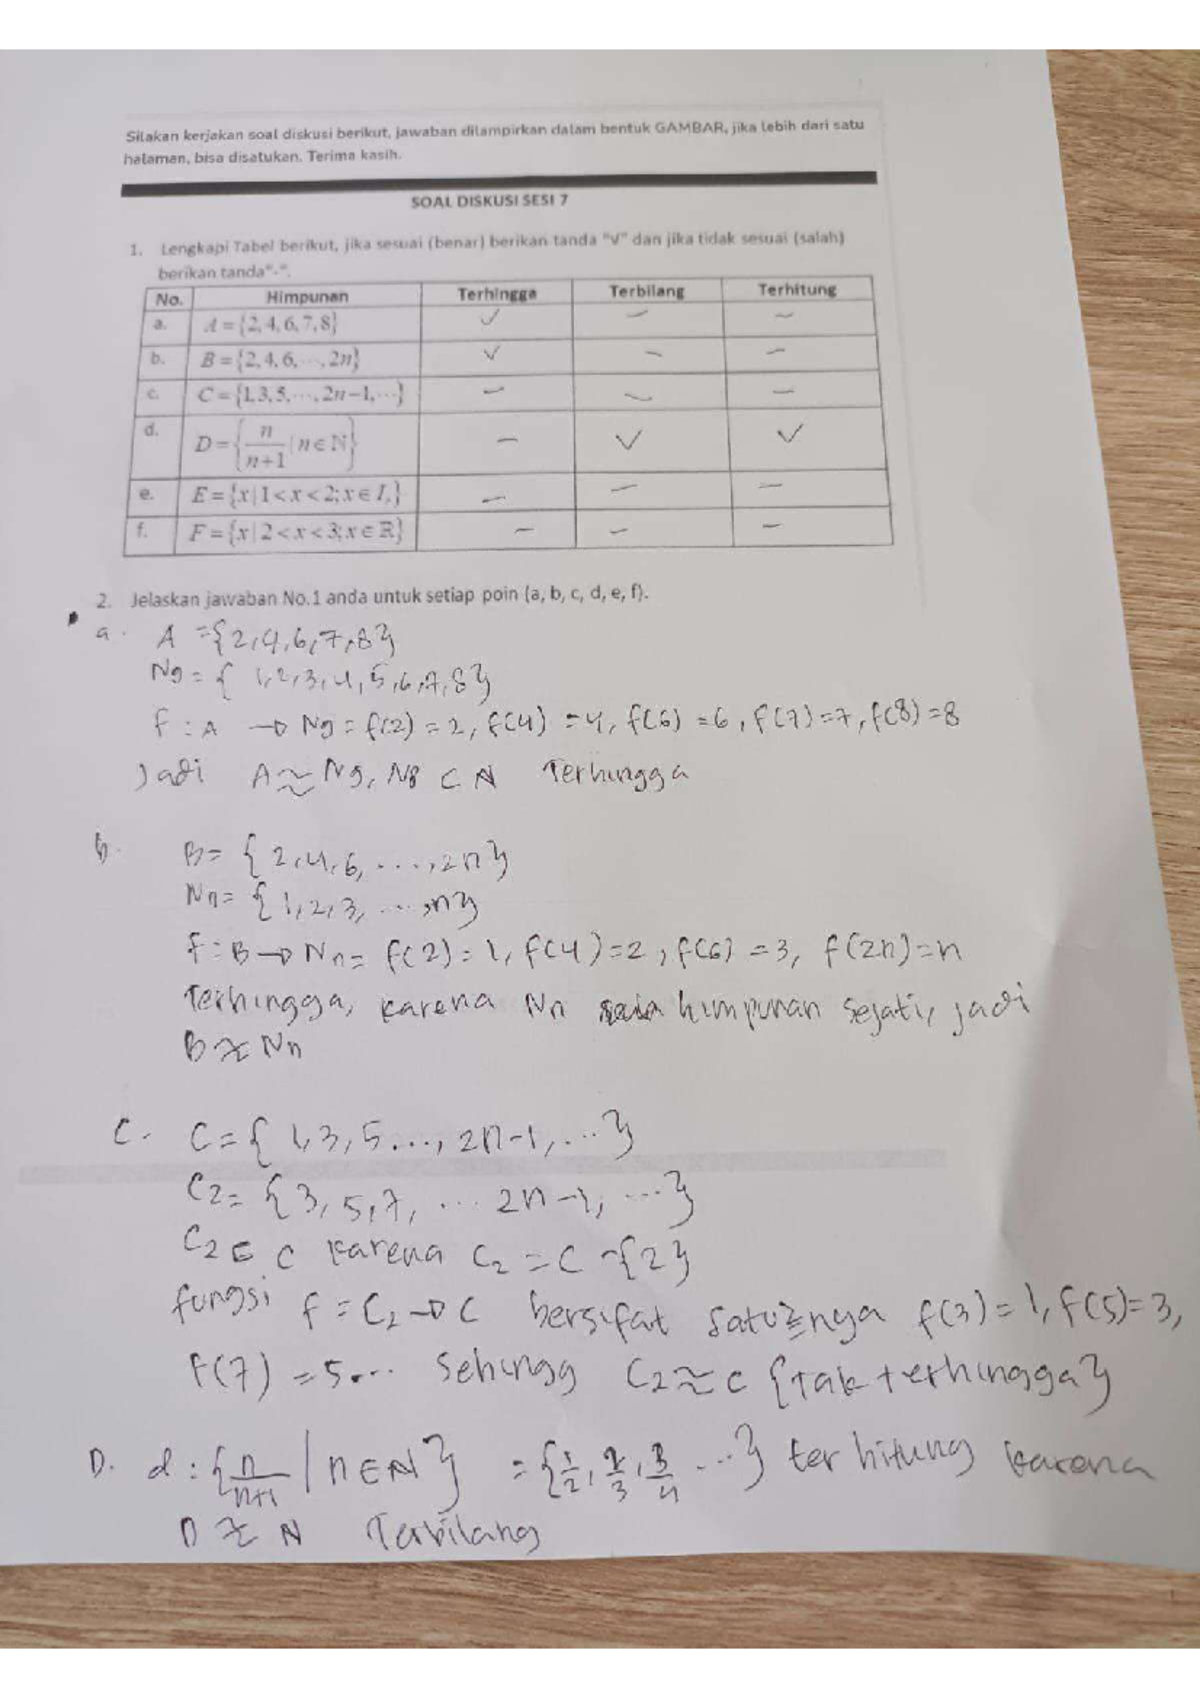 Silakan kerjakan soal diskusi berikut, jawaban dilampirkan dalam bentuk GAMBAR, jika lebih dari satu
halaman, bisa disatukan. Terima kasih.
SOAL DISKUSI SESI 7
1. Lengkapi Tabel berikut, jika sesuai (benar) berikan tanda "√" dan jika tidak sesuai (salah)
berikan tanda"-".
No. Himpunan Terhingga Terbilang Terhitung
a. A = {2,4,6,7,8} ✓ - -
b. B = {2,4,6,⋯,2n} ✓ - -
c. C = {1,3,5,⋯,2n−1,⋯} - - -
d. D = {n/(n+1) | n ∈ ℕ} - ✓ ✓
e. E = {x | 1 < x < 2; x ∈ I,} - - -
f. F = {x | 2 < x < 3; x ∈ ℝ} - - -
2. Jelaskan jawaban No.1 anda untuk setiap poin (a, b, c, d, e, f).
a. A = {2,4,6,7,8}
N9 = { 1,2,3,4,5,6,7,8}
f : A → N9 = f(2) = 2, f(4) = 4, f(6) = 6, f(7) = 7, f(8) = 8
Jadi A ≈ N9, N8 ⊂ N Terhingga
b. B = {2,4,6, ...., 2n}
Nn = {1,2,3, ...., n}
f : B → Nn = f(2) = 1, f(4) = 2, f(6) = 3, f(2n) = n
Terhingga, karena Nn himpunan sejati, jadi
B ≈ Nn
C. C = { 1,3,5 ..., 2n-1, ...}
C2 = {3,5,7, ... 2n-1, ...}
C2 ⊆ C karena C2 = C -{2}
fungsi f = C2 → C bersifat satu2nya f(3) = 1, f(5) = 3,
f(7) = 5... Sehingg C2 ≈ C {tak terhingga}
D. d : {n/(n+1) | n ∈ N} = {1/2, 2/3, 3/4 ...} terhitung karena
D ≈ N Terbilang